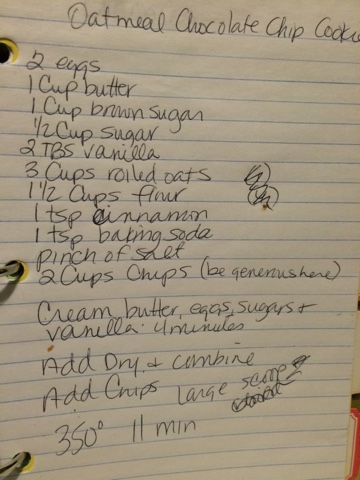 Oatmeal Chocolate Chip Cookie
2 eggs
1 Cup butter
1 Cup brown sugar
1/2 Cup sugar
2 TBS vanilla
3 Cups rolled oats
1 1/2 Cups flour
1 tsp cinnamon
1 tsp baking soda
pinch of salt
2 Cups Chips (be generous here)
Cream butter, eggs, sugars +
vanilla. 4 minutes
Add Dry & combine
Add Chips Large scoop
350° 11 min